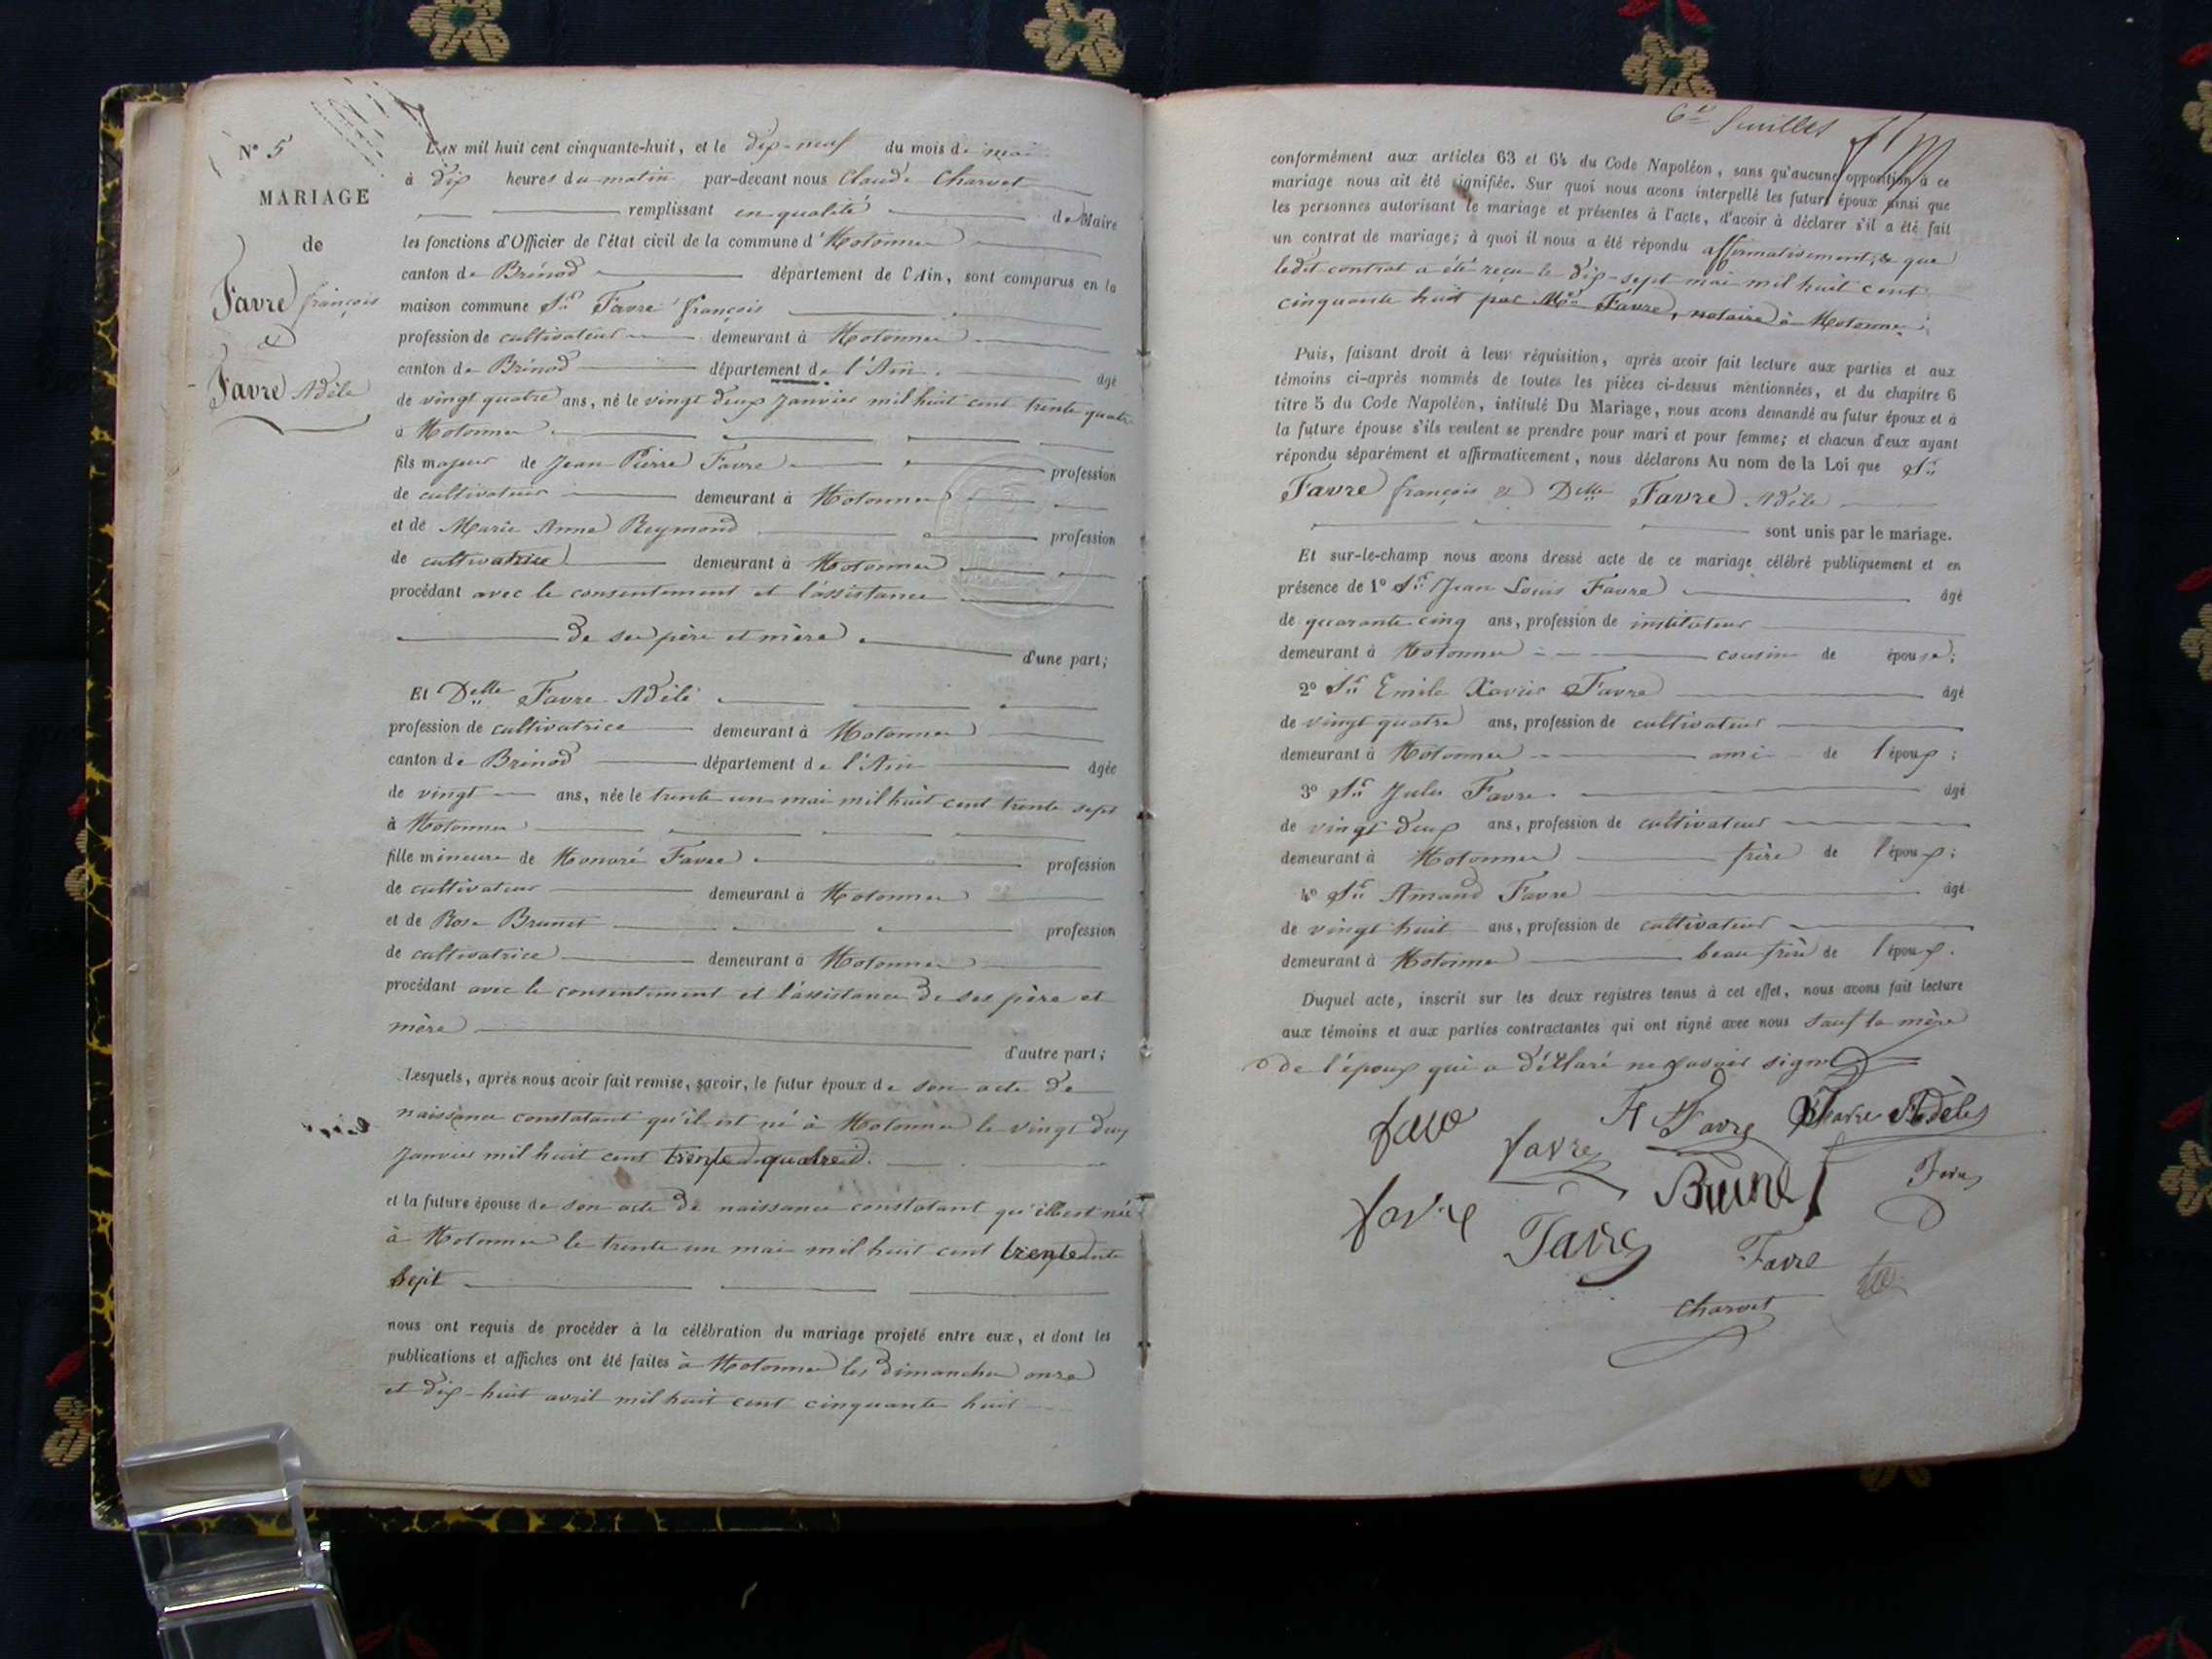 N° 5
MARIAGE
de
Favre françois
et
Favre Adèle
L'AN mil huit cent cinquante-huit, et le dix-neuf du mois de mai
à dix heures du matin par-devant nous Claude Charvet
remplissant en qualité de Maire
les fonctions d'Officier de l'état civil de la commune d'Hotonnes
canton de Brénod département de l'Ain, sont comparus en la
maison commune Sr. Favre françois
profession de cultivateur demeurant à Hotonnes
canton de Brénod département de l'Ain. âgé
de vingt quatre ans, né le vingt deux Janvier mil huit cent trente quatre
à Hotonnes
fils majeur de Jean Pierre Favre profession
de cultivateur demeurant à Hotonnes
et de Marie Anne Reymond profession
de cultivatrice demeurant à Hotonnes
procédant avec le consentement et l'assistance
de ses père et mère d'une part;
Et Delle Favre Adèle
profession de cultivatrice demeurant à Hotonnes
canton de Brénod département de l'Ain âgée
de vingt ans, née le trente un mai mil huit cent trente sept
à Hotonnes
fille mineure de Honoré Favre profession
de cultivateur demeurant à Hotonnes
et de Rose Brunet profession
de cultivatrice demeurant à Hotonnes
procédant avec le consentement et l'assistance de ses père et
mère
d'autre part;
Lesquels, après nous avoir fait remise, savoir, le futur époux de son acte de
naissance constatant qu'il est né à Hotonnes le vingt deux
Janvier mil huit cent trente quatre
et la future épouse de son acte de naissance constatant qu'elle est née
à Hotonnes le trente un mai mil huit cent trente
sept
nous ont requis de procéder à la célébration du mariage projeté entre eux, et dont les
publications et affiches ont été faites à Hotonnes les dimanches onze
et dix-huit avril mil huit cent cinquante huit
6e feuillet
conformément aux articles 63 et 64 du Code Napoléon, sans qu'aucune opposition à ce
mariage nous ait été signifiée. Sur quoi nous avons interpellé les futurs époux ainsi que
les personnes autorisant le mariage et présentes à l'acte, d'avoir à déclarer s'il a été fait
un contrat de mariage; à quoi il nous a été répondu affirmativement, & que
ledit contrat a été reçu le dix-sept mai mil huit cent
cinquante huit par Me. Favre, notaire à Hotonnes
Puis, faisant droit à leur réquisition, après avoir fait lecture aux parties et aux
témoins ci-après nommés de toutes les pièces ci-dessus mentionnées, et du chapitre 6
titre 5 du Code Napoléon, intitulé Du Mariage, nous avons demandé au futur époux et à
la future épouse s'ils veulent se prendre pour mari et pour femme; et chacun d'eux ayant
répondu séparément et affirmativement, nous déclarons Au nom de la Loi que Sr.
Favre françois & Delle Favre Adèle
sont unis par le mariage.
Et sur-le-champ nous avons dressé acte de ce mariage célébré publiquement et en
présence de 1° Sr. Jean Louis Favre âgé
de quarante cinq ans, profession de instituteur
demeurant à Hotonnes cousin de épouse;
2° Sr. Emile Xavier Favre âgé
de vingt quatre ans, profession de cultivateur
demeurant à Hotonnes ami de l'époux;
3° Sr. Jules Favre âgé
de vingt deux ans, profession de cultivateur
demeurant à Hotonnes frère de l'époux;
4° Sr. Amand Favre âgé
de vingt huit ans, profession de cultivateur
demeurant à Hotonnes beau frère de l'époux.
Duquel acte, inscrit sur les deux registres tenus à cet effet, nous avons fait lecture
aux témoins et aux parties contractantes qui ont signé avec nous sauf la mère
de l'époux qui a déclaré ne savoir signer
favre favre H Favre Favre Adèle
favre Favre Brunet Favre
Favre
Charvet